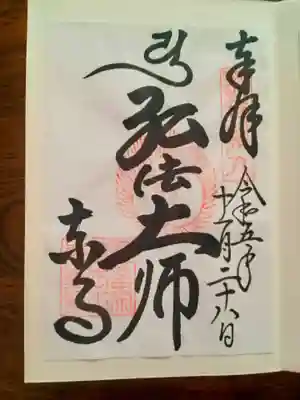 奉拝
令和五年
十一月二十八日
弘法大師
東寺